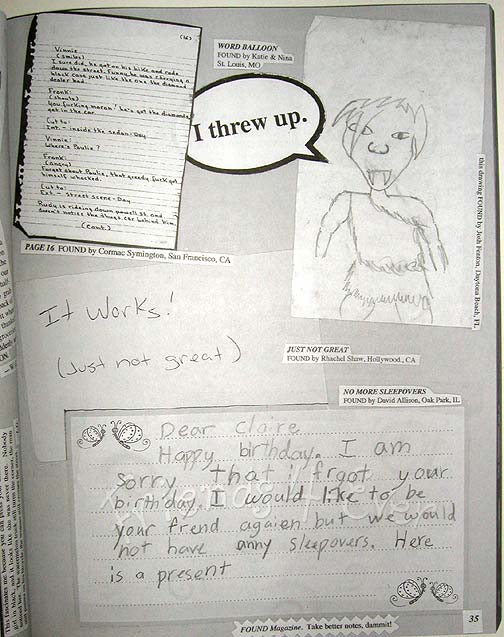 (16)
Vinnie
(smiles)
I sure did, he got on his bike and rode
down the street. Funny, he was carrying a
black case just like the one the diamond
dealer had.
Frank:
(shouts)
You fucking moron! he's got the diamonds
get in the car.
Cut to:
Int. - inside the sedan - Day
Vinnie:
Where's Paulie?
Frank:
(angry)
Forget about Paulie, that greedy fuck got
himself whacked.
Cut to:
Ext. - Street scene - Day
Rudy is riding down powell st. and
doesn't notice the thugs car behind him.
(Cont.)
PAGE 16 FOUND by Cormac Symington, San Francisco, CA
WORD BALLOON
FOUND by Katie & Nina
St. Louis, MO
I threw up.
this drawing FOUND by Josh Fenton, Daytona Beach, FL
It Works!
(Just not great)
JUST NOT GREAT
FOUND by Rhachel Shaw, Hollywood, CA
NO MORE SLEEPOVERS
FOUND by David Allison, Oak Park, IL
Dear Claire
Happy birthday. I am
sorry that i frgot your
birthday. I would like to be
your frend agaien but we would
not have anny sleepovers. Here
is a present
FOUND Magazine. Take better notes, dammit!
35